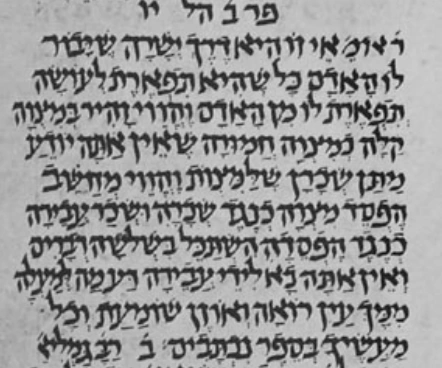 פר ב הל יו
ר אומ אי זו היא דרך ישרה שיבור
לו האדם כל שהיא תפארת לעושה
תפארת לו מן האדם והווי זהיר במצוה
קלה כמצוה חמורה שאין אתה יודע
מתן שכרן שלמצות והווי מחשב
הפסד מצוה כנגד שכרה ושכר עבירה
כנגד הפסדה הסתכל בשלשה דברים
ואין אתה בא לידי עבירה דע מה למעלה
ממך עין רואה ואוזן שומעת וכל
מעשיך בספר נכתבים ב רבן גמליא